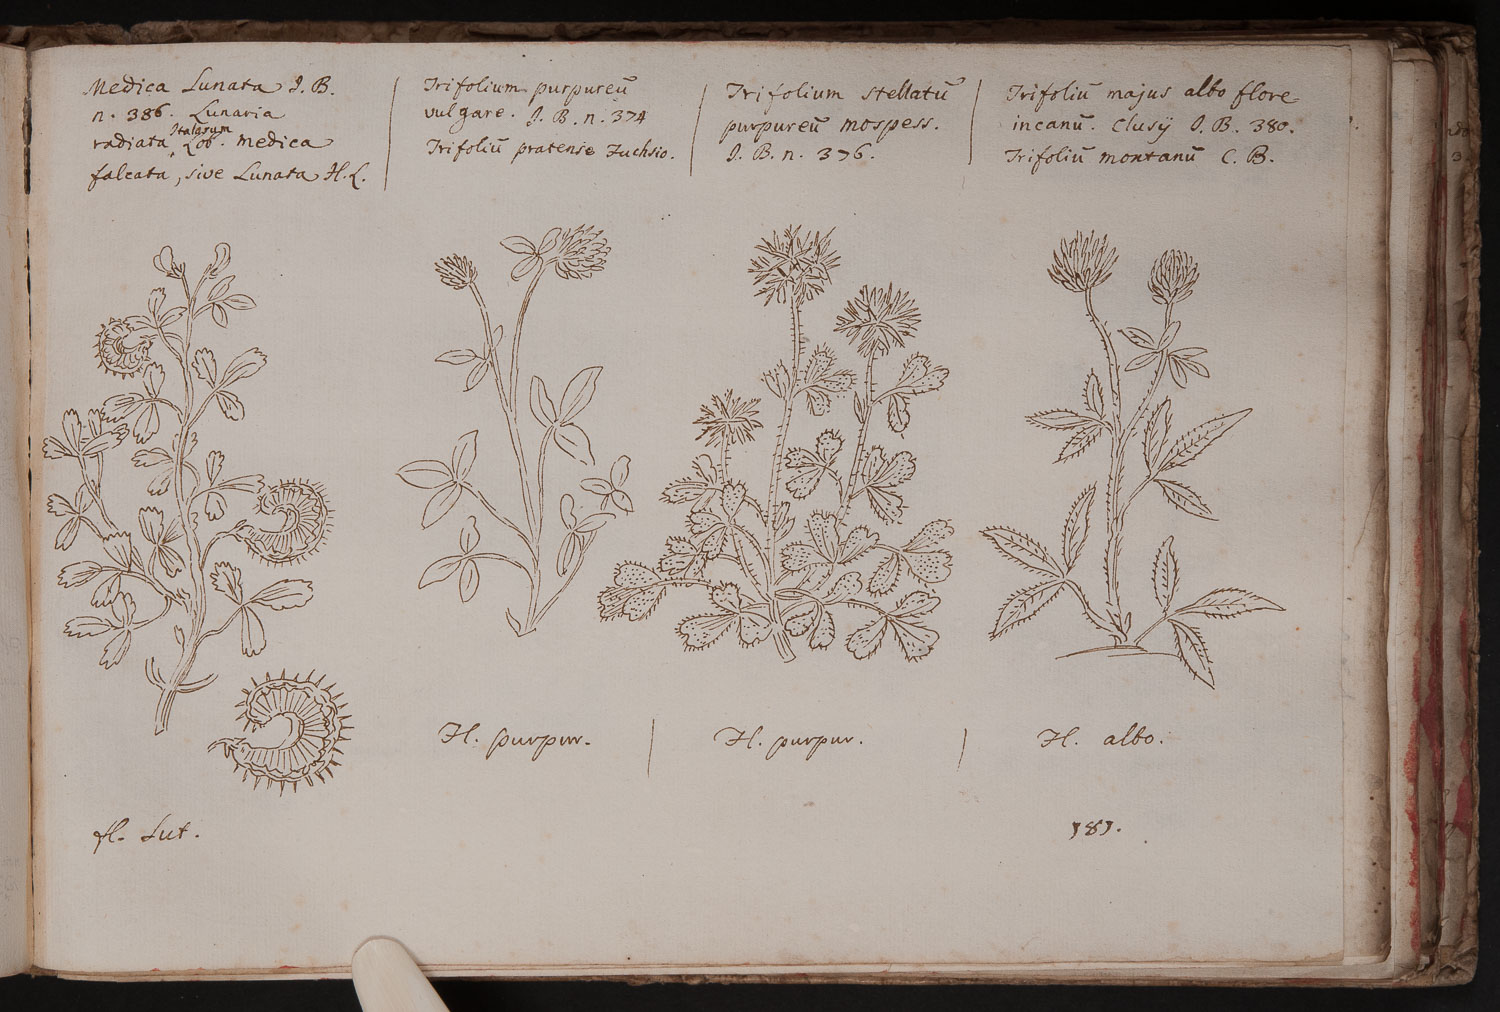 Medica Lunata J. B.
n. 386. Lunaria
Italorum
radiata Lob. medica
falcata, sive Lunata H. L.
Trifolium purpureũ
vulgare. J. B. n. 374
Trifoliũ pratense Fuchsio.
Trifolium stellatũ
purpureũ monspess.
J. B. n. 376.
Trifoliũ majus albo flore
incanũ. Clusÿ J. B. 380.
Trifoliũ montanũ C. B.
fl. purpur.
fl. purpur.
fl. albo.
fl. Lut.
181.